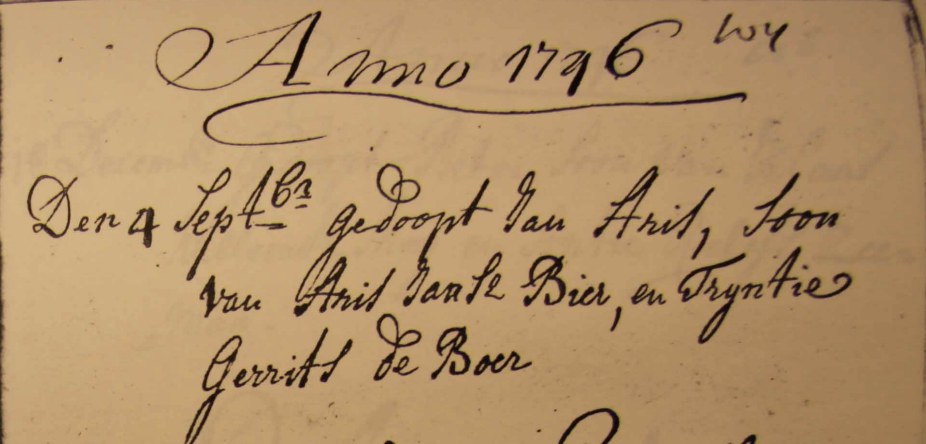 Anno 1796
Den 4 Sept br gedoopt Jan Aris, Soon
van Aris Jansz Bier, en Tryntie
Gerrits de Boer